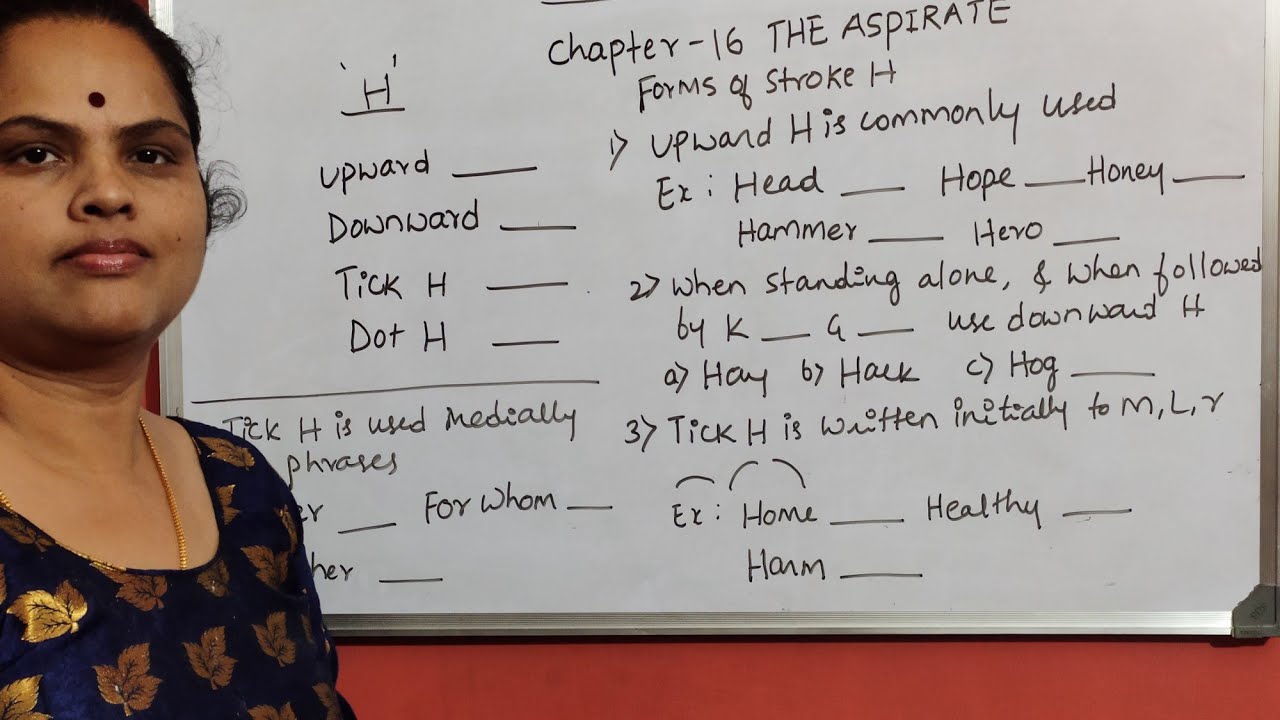 'H'
Upward ____
Downward ____
Tick H ____
Dot H ____
Tick H is used Medially
phrases
For whom ____
Chapter-16 THE ASPIRATE
Forms of Stroke H
1) Upward H is commonly used
Ex: Head ____ Hope ____ Honey ____
Hammer ____ Hero ____
2) When standing alone, & when followed
by K ____ G ____ use downward H
a) Hay b) Hack c) Hog ____
3) Tick H is written initially to M, L, r
Ex: Home ____ Healthy ____
Harm ____